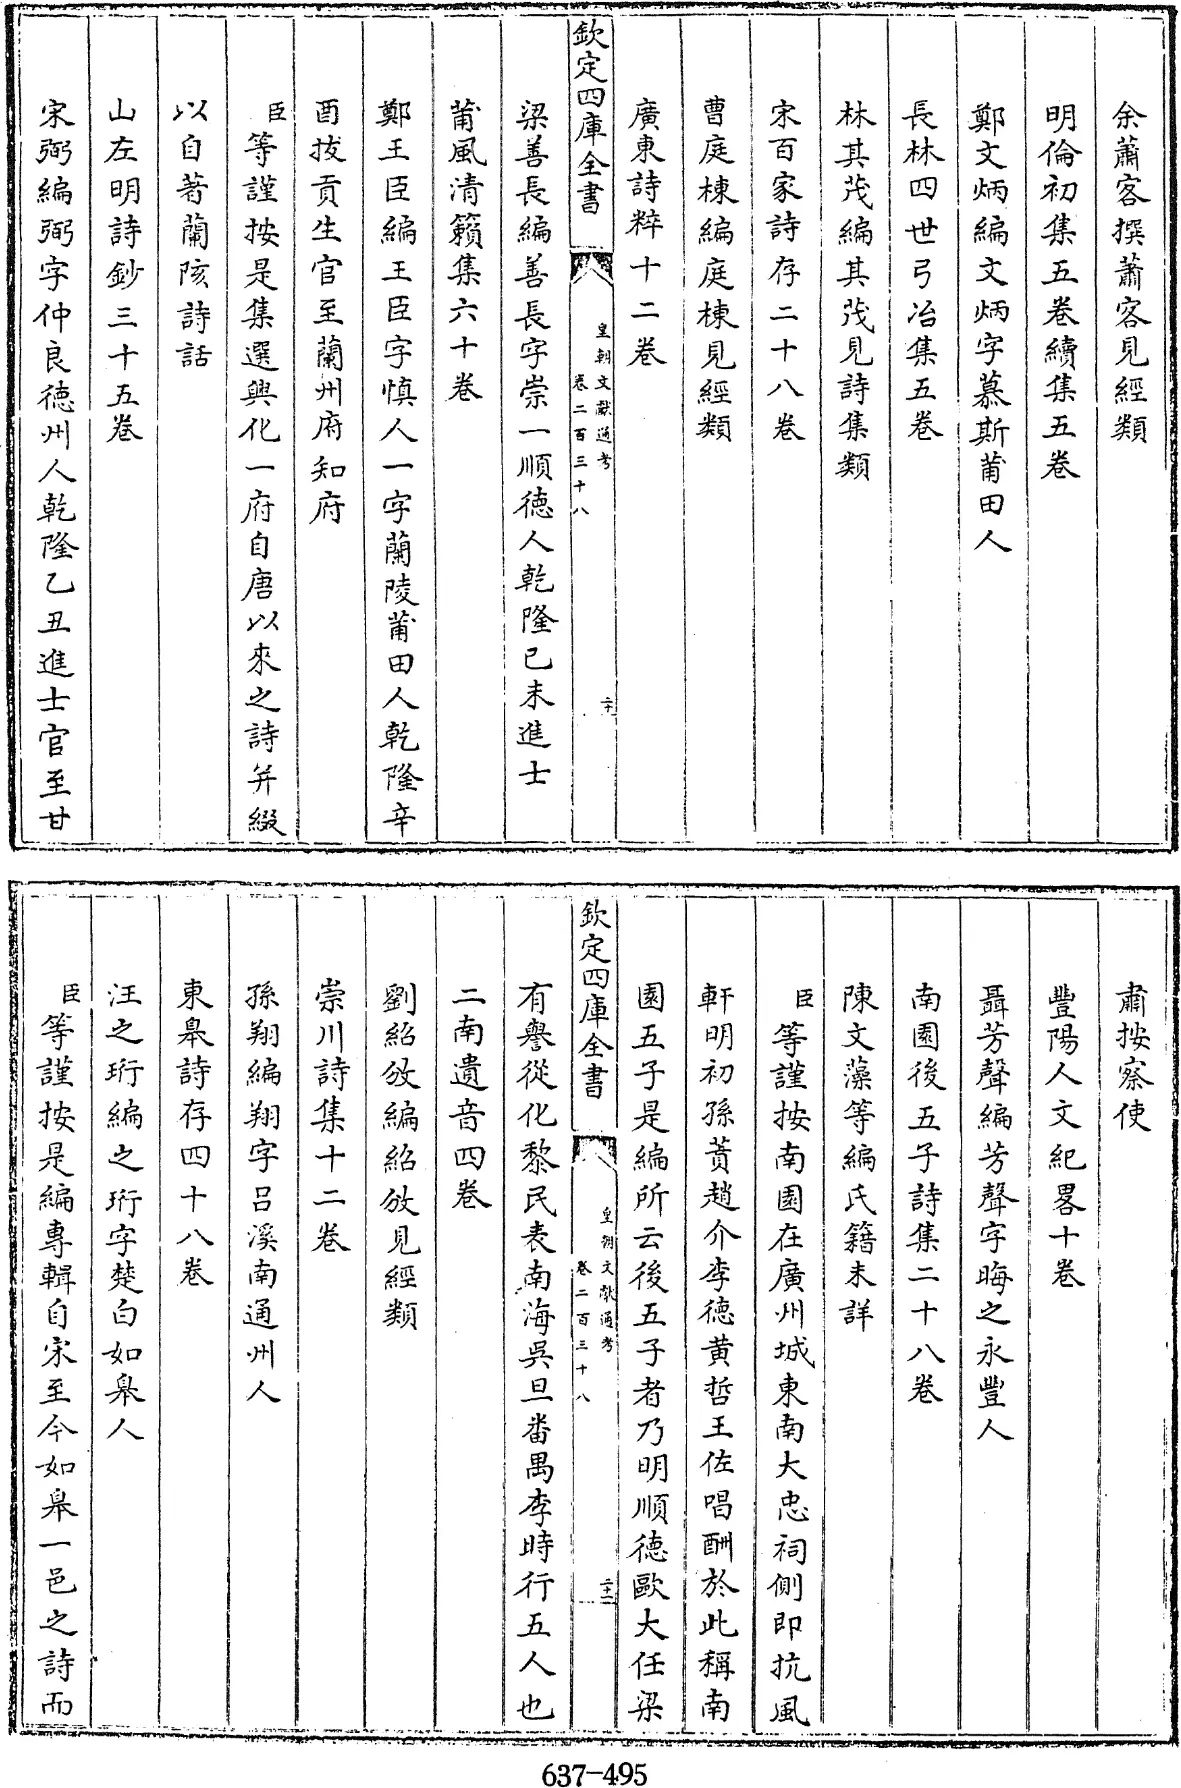 余蕭客撰蕭客見經類
明倫初集五卷續集五卷
鄭文炳編文炳字慕斯莆田人
長林四世弓冶集五卷
林其茂編其茂見詩集類
宋百家詩存二十八卷
曹庭棟編庭棟見經類
廣東詩粹十二卷
欽定四庫全書
皇朝文獻通考
卷二百三十八
梁善長編善長字崇一順德人乾隆己未進士
莆風清籟集六十卷
鄭王臣編王臣字慎人一字蘭陵莆田人乾隆辛
酉拔貢生官至蘭州府知府
臣等謹按是集選興化一府自唐以來之詩并綴
以自著蘭陔詩話
山左明詩鈔三十五卷
宋弼編弼字仲良德州人乾隆乙丑進士官至甘
肅按察使
豐陽人文紀畧十卷
聶芳聲編芳聲字晦之永豐人
南園後五子詩集二十八卷
陳文藻等編氏籍未詳
臣等謹按南園在廣州城東南大忠祠側即抗風
軒明初孫蕡趙介李德黃哲王佐唱酬於此稱南
園五子是編所云後五子者乃明順德歐大任梁
欽定四庫全書
皇朝文獻通考
卷二百三十八
二十二
有譽從化黎民表南海吳旦番禺李時行五人也
二南遺音四卷
劉紹攽編紹攽見經類
崇川詩集十二卷
孫翔編翔字呂溪南通州人
東皋詩存四十八卷
汪之珩編之珩字楚白如皋人
臣等謹按是編專輯自宋至今如皋一邑之詩而
637-495